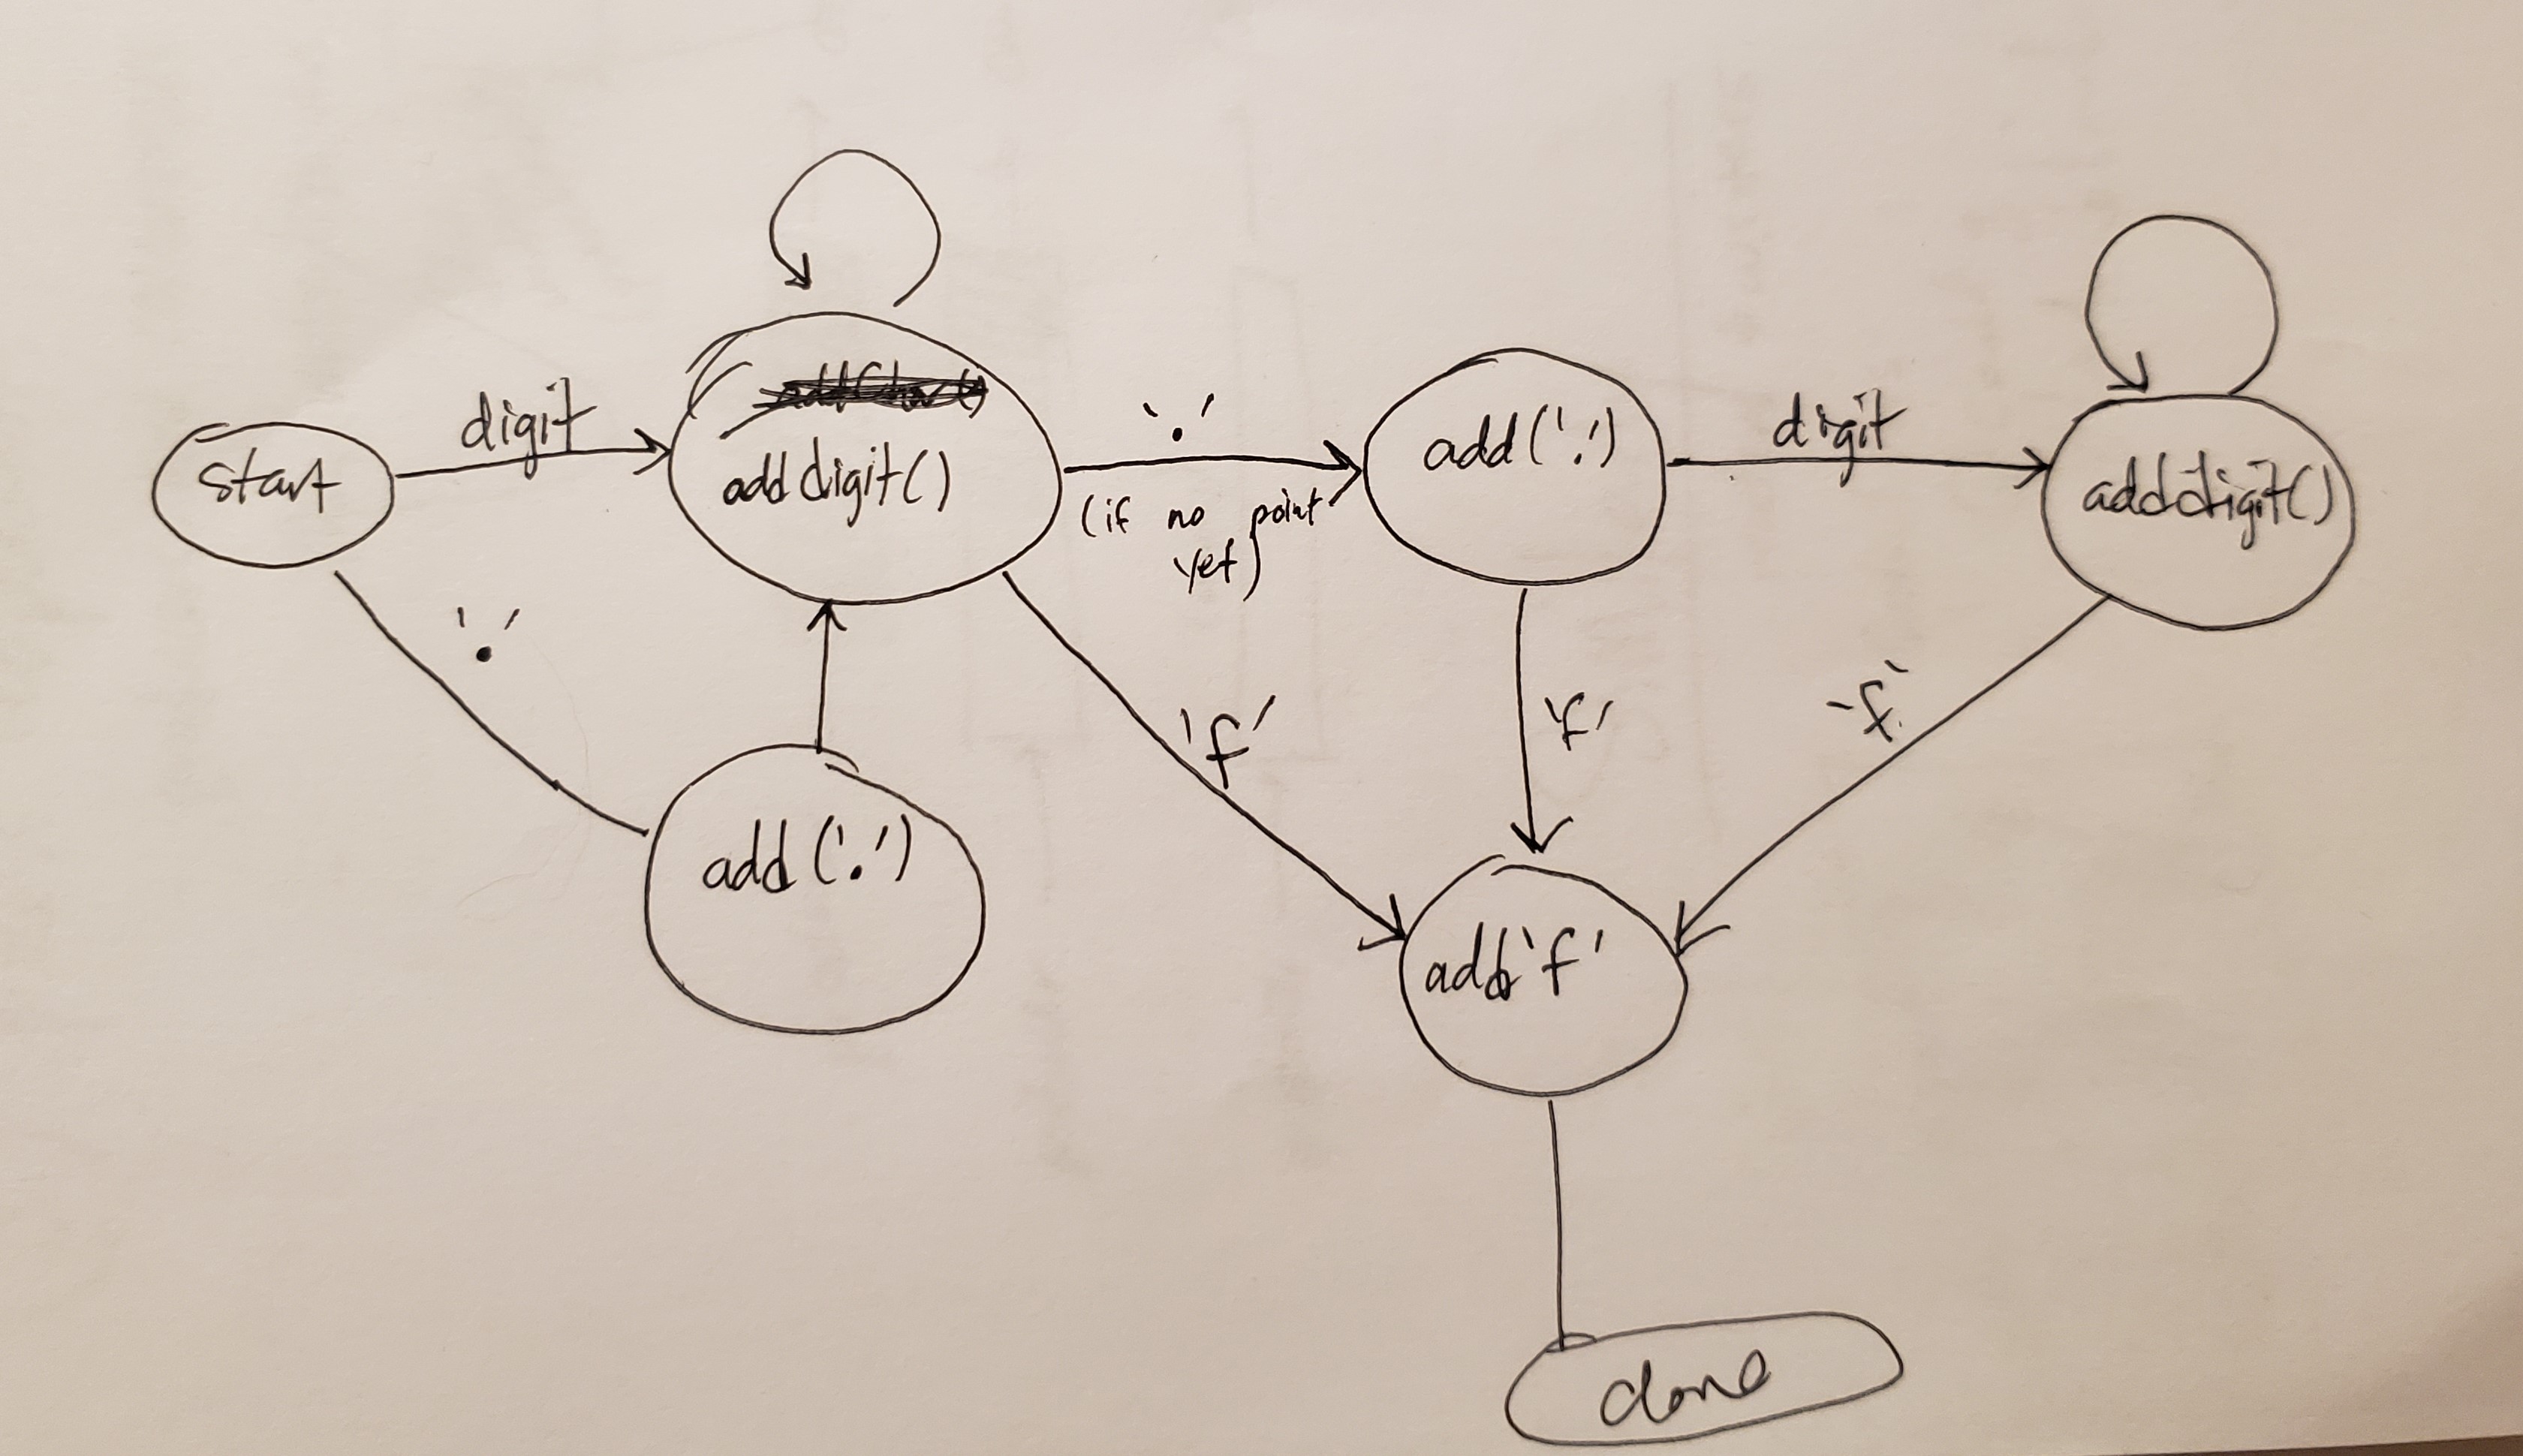 start
digit
add digit()
'.'
(if no point
yet)
add('.')
digit
add digit()
'.'
add('.')
'f'
'f'
'f'
add 'f'
done